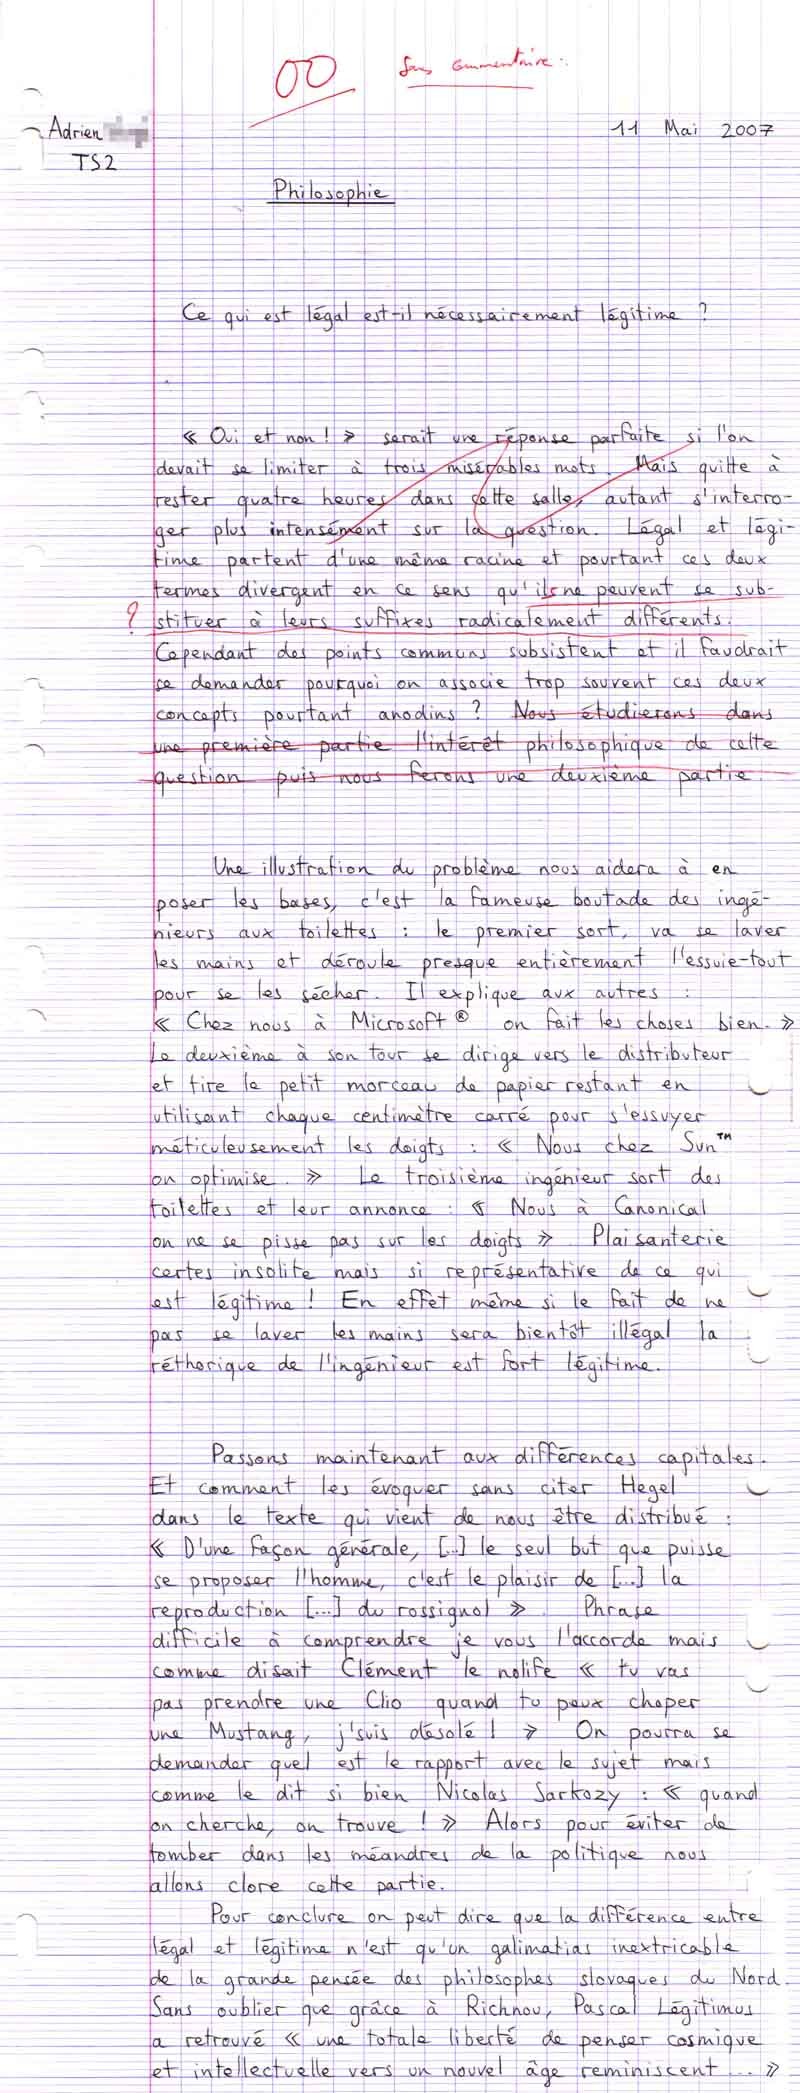 00 Sans commentaire..
Adrien
11 Mai 2007
TS2
Philosophie
Ce qui est légal est-il nécessairement légitime ?
« Oui et non ! » serait une réponse parfaite si l'on
devait se limiter à trois misérables mots. Mais quitte à
rester quatre heures dans cette salle, autant s'interro-
ger plus intensément sur la question. Légal et légi-
time partent d'une même racine et pourtant ces deux
termes divergent en ce sens qu'ils ne peuvent se sub-
? stituer à leurs suffixes radicalement différents.
Cependant des points communs subsistent et il faudrait
se demander pourquoi on associe trop souvent ces deux
concepts pourtant anodins ? Nous étudierons dans
une première partie l'intérêt philosophique de cette
question puis nous ferons une deuxième partie.
Une illustration du problème nous aidera à en
poser les bases, c'est la fameuse boutade des ingé-
nieurs aux toilettes : le premier sort, va se laver
les mains et déroule presque entièrement l'essuie-tout
pour se les sécher. Il explique aux autres :
« Chez nous à Microsoft® on fait les choses bien. »
Le deuxième à son tour se dirige vers le distributeur
et tire le petit morceau de papier restant en
utilisant chaque centimètre carré pour s'essuyer
méticuleusement les doigts : « Nous chez Sun™
on optimise. » Le troisième ingénieur sort des
toilettes et leur annonce : « Nous à Canonical
on ne se pisse pas sur les doigts » Plaisanterie
certes insolite mais si représentative de ce qui
est légitime ! En effet même si le fait de ne
pas se laver les mains sera bientôt illégal la
réthorique de l'ingénieur est fort légitime.
Passons maintenant aux différences capitales.
Et comment les évoquer sans citer Hegel
dans le texte qui vient de nous être distribué :
« D'une façon générale, [...] le seul but que puisse
se proposer l'homme, c'est le plaisir de [...] la
reproduction [...] du rossignol » Phrase
difficile à comprendre je vous l'accorde mais
comme disait Clément le nolife « tu vas
pas prendre une Clio quand tu peux choper
une Mustang, j'suis désolé ! » On pourra se
demander quel est le rapport avec le sujet mais
comme le dit si bien Nicolas Sarkozy : « quand
on cherche, on trouve ! » Alors pour éviter de
tomber dans les méandres de la politique nous
allons clore cette partie.
Pour conclure on peut dire que la différence entre
légal et légitime n'est qu'un galimatias inextricable
de la grande pensée des philosophes slovaques du Nord.
Sans oublier que grâce à Richnou, Pascal Légitimus
a retrouvé « une totale liberté de penser cosmique
et intellectuelle vers un nouvel âge reminiscent ... »